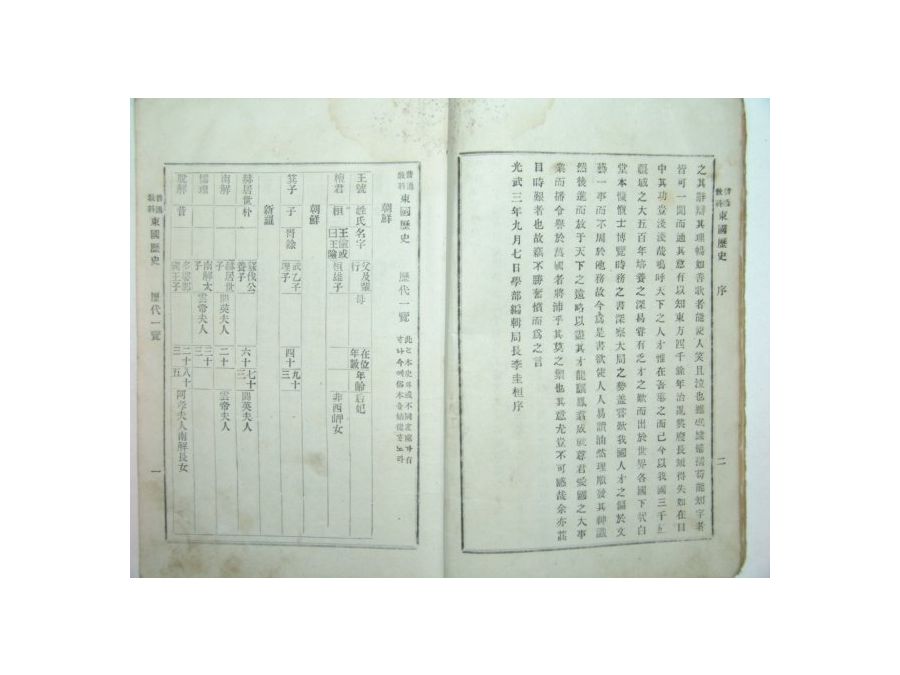 普通教科東國歷史 序 二
之其辭辯其理暢如善歌者能使人笑且泣也雖
皆可一聞而通其意有以知東方四千餘年治亂興廢長短得失如在目
中其功豈淺淺哉嗚呼天下之人才惟在吾導之而已今以我國三千里
疆域之大五百年培養之深易嘗有乏才之歎而出於世界各國下哉白
堂本慷慨士博覽時務之書深察大局之勢盖嘗歎我國人才之偏於文
藝一事而不周於他務故今爲是書欲使人人易讀油然理順發其神識
然後進而放于天下之遠略以盡其才龍驤鳳翥成就尊君愛國之大事
業而播令譽於萬國者將沛乎其莫之禦也其意尤豈不可感哉余亦蒿
目時艱者也故竊不勝奮憤而爲之言
光武三年九月七日學部編輯局長李圭桓序
普通教科東國歷史 歷代一覽
朝鮮
王號 姓氏名字 父及輩行 母 在位年數 年齡 后妃
檀君 桓 王儉或曰王險 桓雄子 非西岬女
朝鮮
箕子 子 胥餘 武乙子 四十 九十三
新羅
赫居世 朴 蘇伐公養子 六十 七十三 閼英夫人
南解 赫居世子 閼英夫人 二十 雲帝夫人
儒理 南解太子 雲帝夫人 三十三
脫解 昔 二十三 八十五 阿孝夫人南解長女
普通教科東國歷史 歷代一覽 一